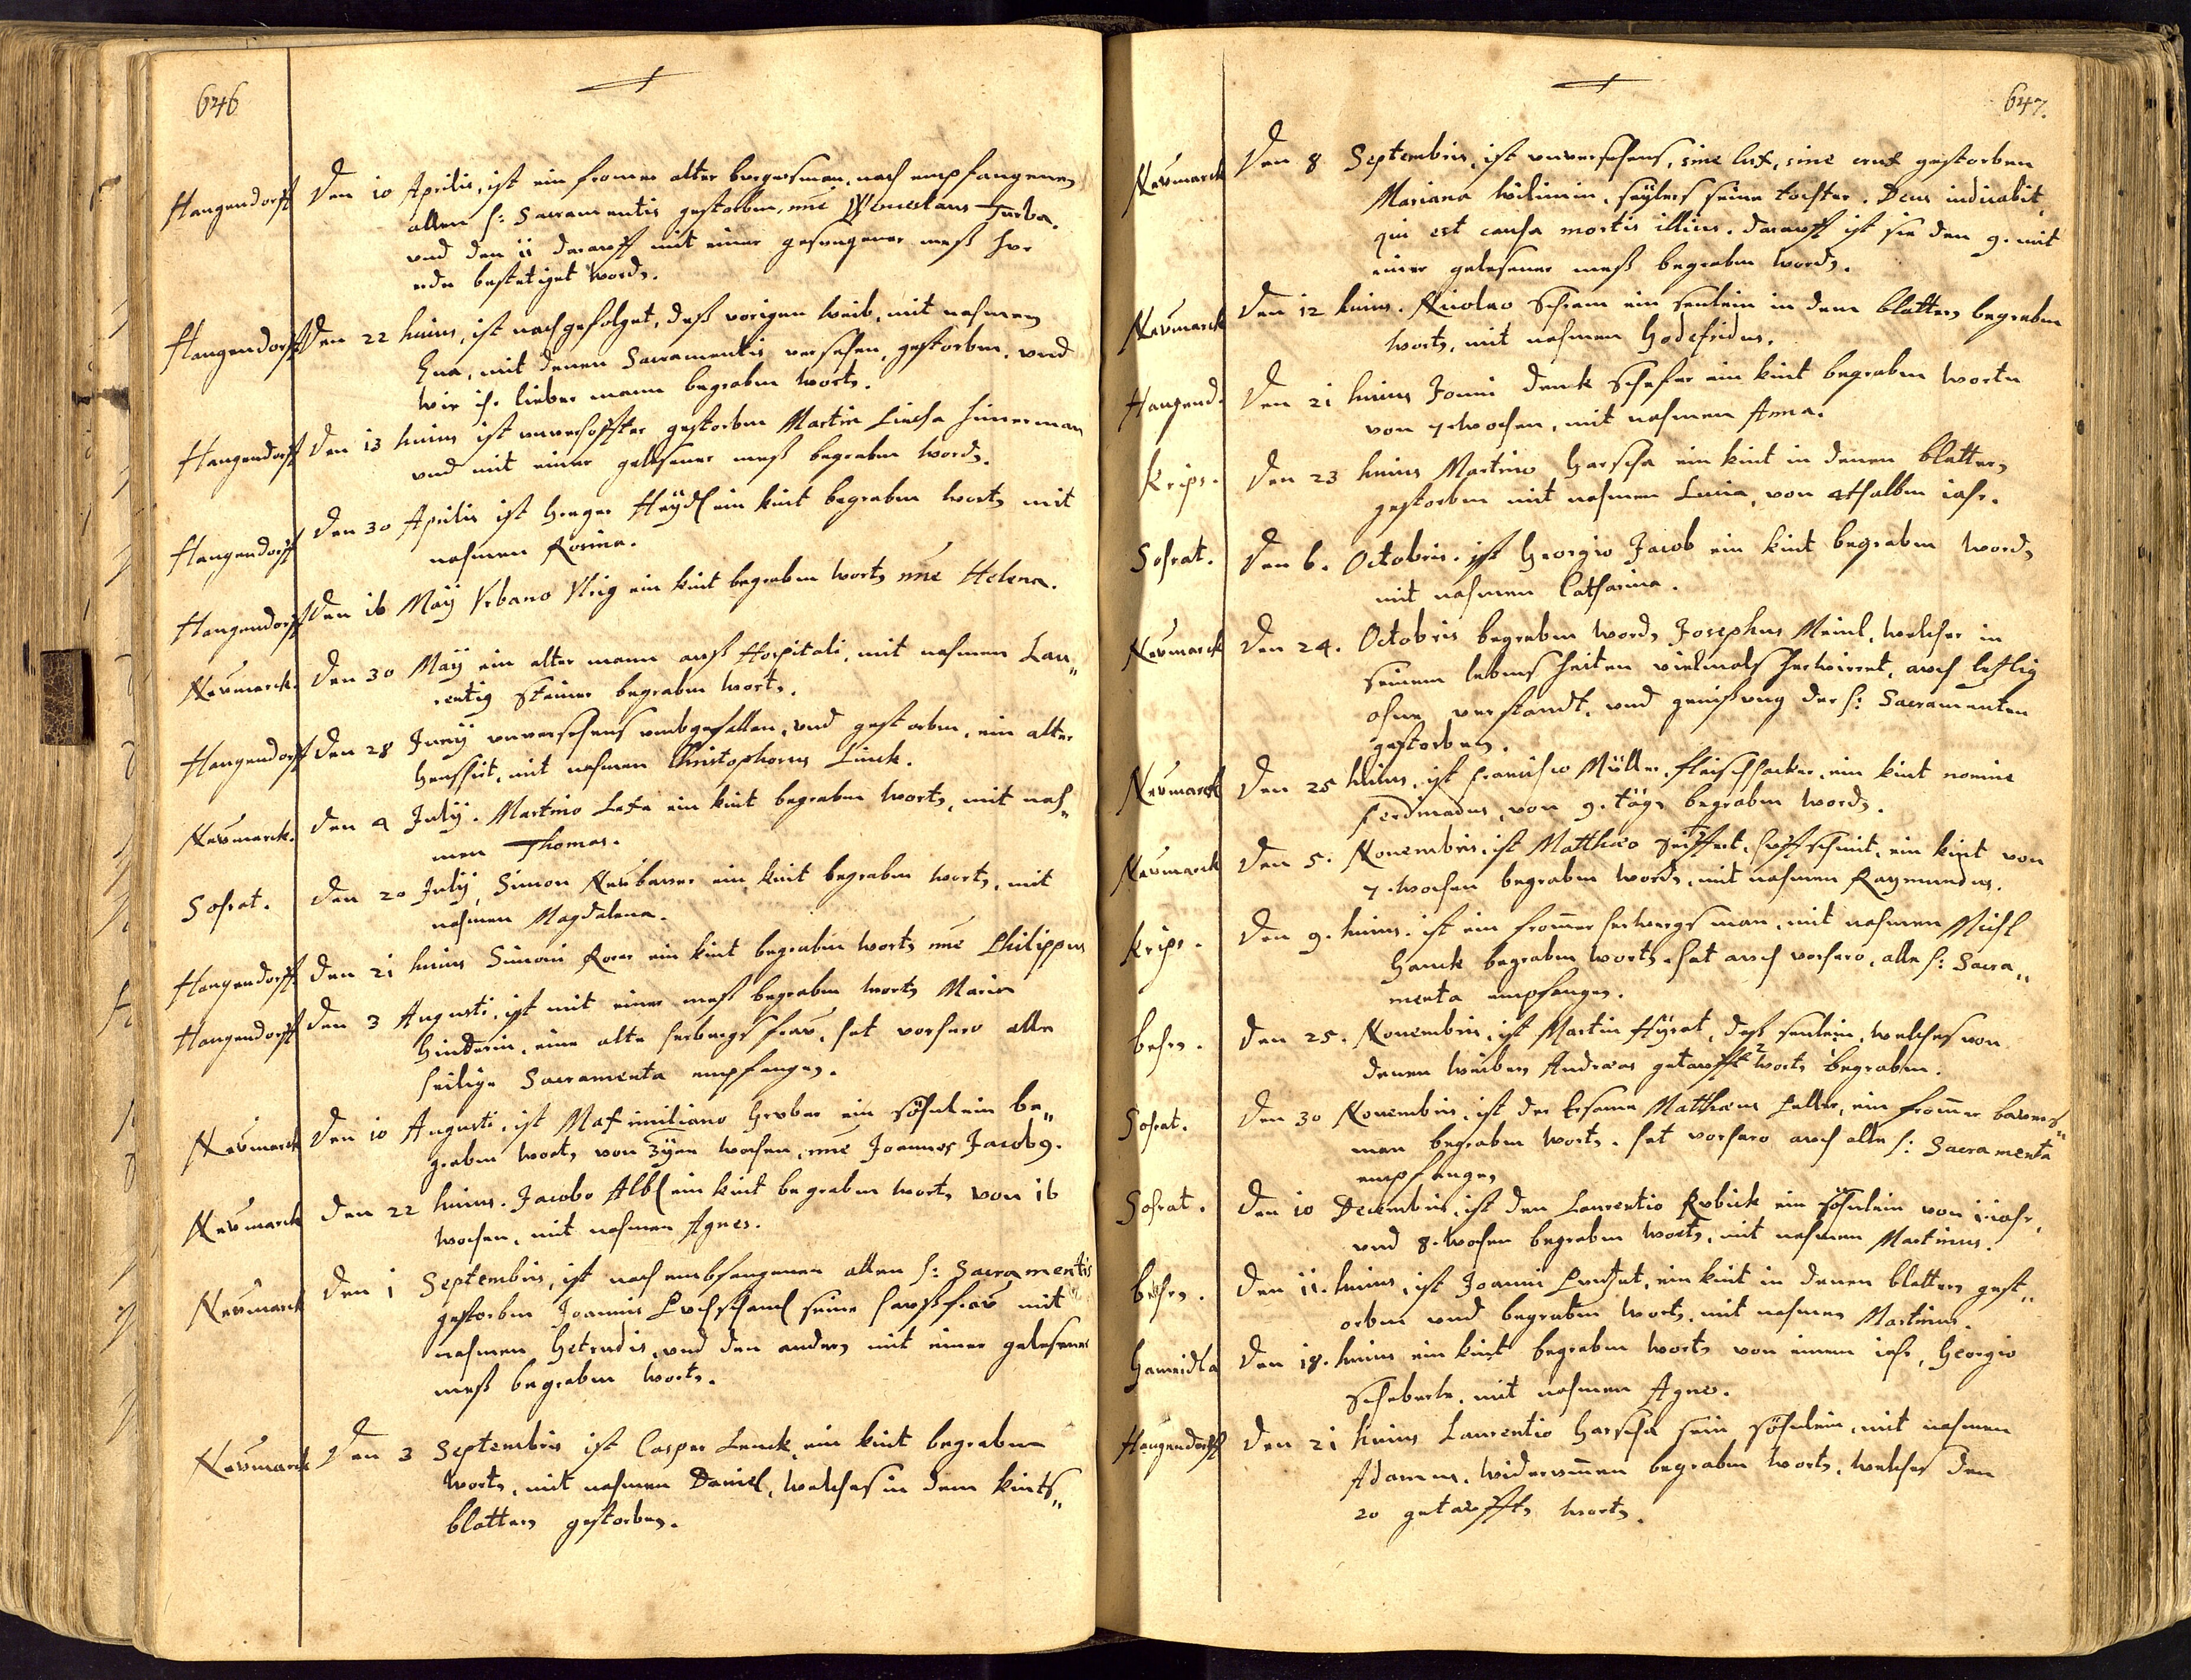 646
Hangendorff Den 10 Aprilis, ist ein fromer alter burgersman, nach empfangenen
allen h: Sacramentis gestorben, nne Wenceslaus Turba.
und den 11 darauff mit einer gesungener meß zur
erden bestetiget word.
Hangendorff Den 22 huius, ist nachgefolget, deß vorigen weib, mit nahmen
Eva, mit denen Sacramentis versehen, gestorben, und
wie ihr lieber mann begraben wort.
Hangendorff Den 13 huius ist unverhoffter gestorben Martin
und mit einer gelesener meß begraben word.
Hangendorff Den 30 Aprilis ist Gregor Heydl ein kint begraben wort mit
nahmen Rosina.
Hangendorff Den 16 Maij Urbano Ulrig ein kint begraben wort nne Helena.
Neumarck. Den 30 Maij ein alter mann auß Hospitali, mit nahmen Lau„
rentig Steiner begraben wort.
Hangendorff Den 28 Junij unversehens umbgefallen, und gestorben, ein alter
mit nahmen Christophorus Linck.
Neumarck. Den 4 Julij. Martino Lexa ein kint begraben wort, mit nah„
men Thomas.
Sohrat. Den 20 Julij, Simon Neubauer ein kint begraben wort, mit
nahmen Magdalena.
Hangendorff Den 21 huius Simoni ein kint begraben wort nne Philippus
Hangendorff Den 3 Augusti, ist mit einer meß begraben wort Maria
Hinderin, eine alte herbergs frau, hat vorhero alle
heilige Sacramenta empfangen.
Neumarck Den 10 Augusti, ist Maximiliano Gruber ein söhnlein be„
graben wort, von wochen, nne Joannes Jacobg.
Neumarck Den 22 huius. Jacobo Albl ein kint begraben wort, von 16
wochen, mit nahmen Agnes.
Neumarck Den 1 Septembris, ist nach embfangenen allen h: Sacramentis
gestorben Joannis seine haußfrau mit
nahmen Getrudis, und den andern mit einer gelesener
meß begraben wort.
Neumarck Den 3 Septembris ist Casper Lenck ein kint begraben
wort, mit nahmen Daniel, welches in dem kints„
blattern gestorben.
647.
Neumarck Den 8 Septembris, ist unversehens, sine lux, sine crux gestorben
Mariana seylers seine tochter. Deus indicabit,
qui est causa mortis illius. darauff ist sie den 9. mit
einer gelesener meß begraben word.
Neumarck Den 12 huius. Nicolao Schram ein senlein in dem blattern begraben
wort, mit nahmen Godefridus.
Hangend. Den 21 huius Joanni Denck Schefer ein kint begraben worten
von 7 wochen, mit nahmen Anna.
Krips. Den 23 huius Martino Harscha ein kint in denen blattern
gestorben mit nahmen Lucia, von 4thalben iahr.
Sohrat. Den 6. Octobris. ist Georgio Jacob ein kint begraben word,
mit nahmen Catharina.
Neumarck Den 24. Octobris begraben word, Josephus Meinl, welcher in
seinem lebens zeiten vielmals verwirret, auch letzlig
ohne verstandt, und genißung der h: Sacramenten
gestorben.
Neumarck Den 25 huius, ist Francisco Müller, fleischhacker, ein kint nomine
Ferdinandus, von 9. täg begraben word.
Neumarck Den 5. Novembris, ist Matthaeo Seiffert, huffschmit, ein kint von
7. wochen begraben word, mit nahmen Raymundus.
Krips. Den 9. huius. ist ein fromer herbergs man, mit nahmen Michl
Hanck begraben wort. hat auch vorhero, alle h: Sacra„
menta empfangen.
Den 25. Novembris, ist Martin deß senlein, welches von
denen weibern Andreas getaufft wort, begraben.
Sohrat. Den 30 Novembris, ist der ersame Matthaeus Keller, ein fromer bauers„
man begraben wort. hat vorhero auch alle h: Sacramenta
empfangen
Sohrat. Den 10 Decembris, ist den Laurentio Rubick ein söhnlein von 1 iahr,
und 8. wochen begraben wort, mit nahmen Martinus.
Den 11. huius, ist Joanni ein kint in denen blattern gest„
orben und begraben wort, mit nahmen Martinus.
Hamridla Den 18. huius ein kint begraben wort von einem iahr, Georgio
Scheberle, mit nahmen Agnes.
Hangendorff Den 21 huius Laurentio Harscha sein söhnlein, mit nahmen
Adamus, widerumen begraben wort, welches den
20 getaufft wort.